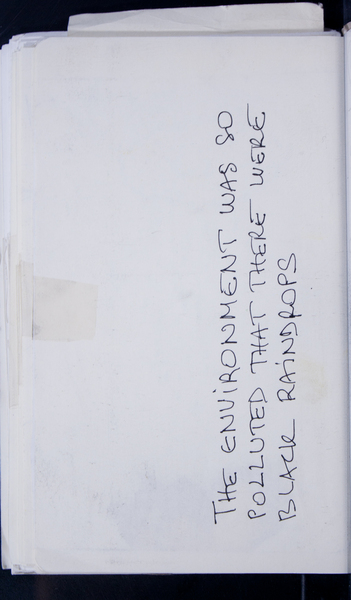 THE ENVIRONMENT WAS SO
POLLUTED THAT THERE WERE
BLACK RAINDROPS